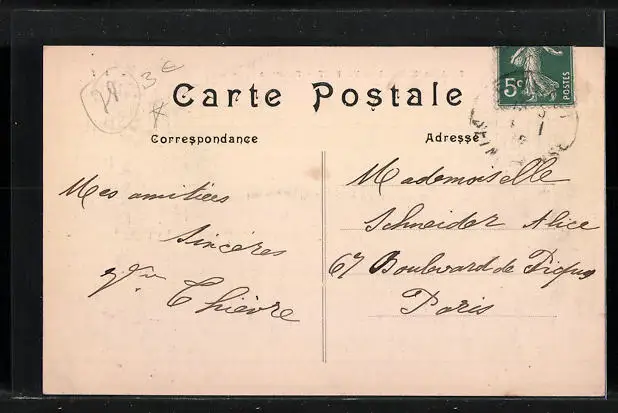 28
3 €
Carte Postale
5c
POSTES
Correspondance
Adresse
Mes amitiées
Sincères
Thièvre
Mademoiselle
Schneider Alice
67 Boulevard de Picpus
Paris